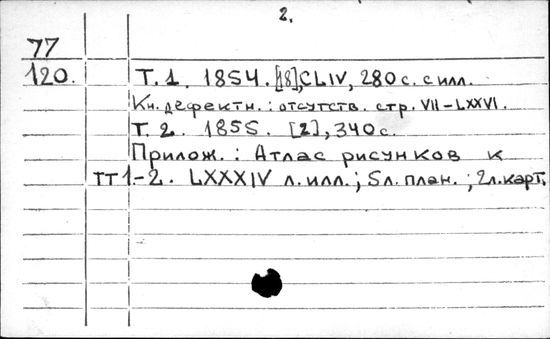 2.
77
120. Т. 1. 1854. [18], CLIV, 280 с. с илл.
Кн. дефектн.: отсутств. стр. VII–LXXVI.
Т. 2. 1855. [2], 340 с.
Прилож.: Атлас рисунков к
ТТ 1–2. LXXXIV л. илл.; 5 л. план.; 2 л. карт.